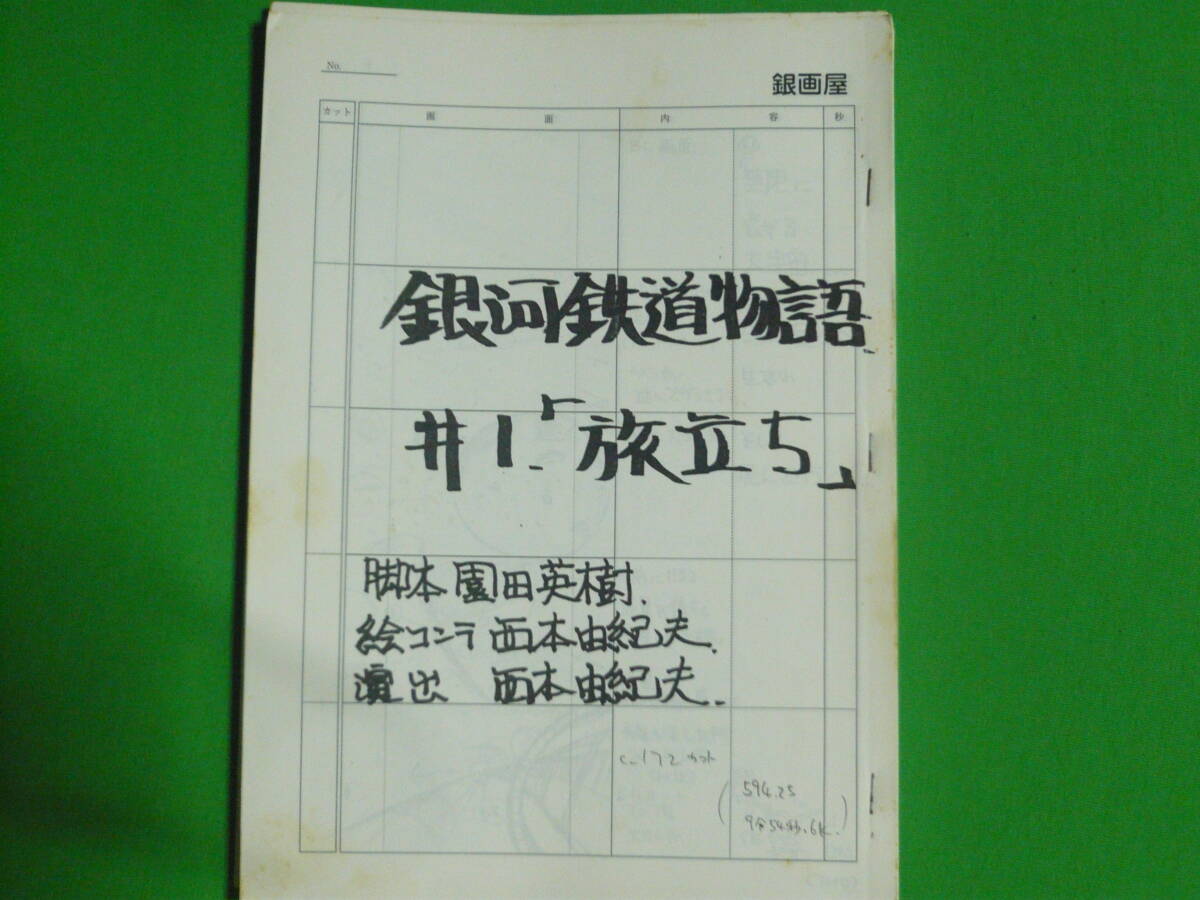 No.
銀画屋
カット 画 面 内 容 秒
銀河鉄道物語.
#1.「旅立ち」
脚本 園田英樹.
絵コンテ 西本由紀夫.
演出 西本由紀夫.
c.172カット
(594.25
9分54秒.6K.)